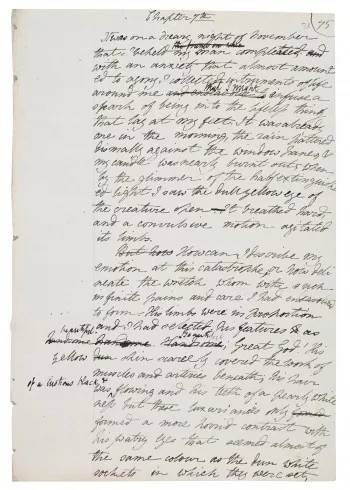 75
Chapter 7th
It was on a dreary night of November
that I beheld my man completed and
with an anxiety that almost amount
ed to agony I collected instruments of life
around me that I might infuse a
spark of being into the lifeless thing
that lay at my feet. It was already
one in the morning, the rain pattered
dismally against the window panes, &
my candle was nearly burnt out, when
by the glimmer of the half extinguish
ed light I saw the dull yellow eye of
the creature open It breathed hard,
and a convulsive motion agitated
its limbs.
But how How can I describe my
emotion at this catastrophe; or how deli
neate the wretch whom with such
infinite pains and care I had endeavoured
to form. His limbs were in proportion
and I had selected his features as
beautiful
handsome Beautiful; Great God! His
yellow dun skin scarcely covered the work of
muscles and arteries beneath; his hair
of a lustrous black &
was flowing and his teeth of a pearly white
ness but these luxuriancies only
formed a more horrid contrast with
his watry eyes that seemed almost of
the same colour as the dun white
sockets in which they were set,